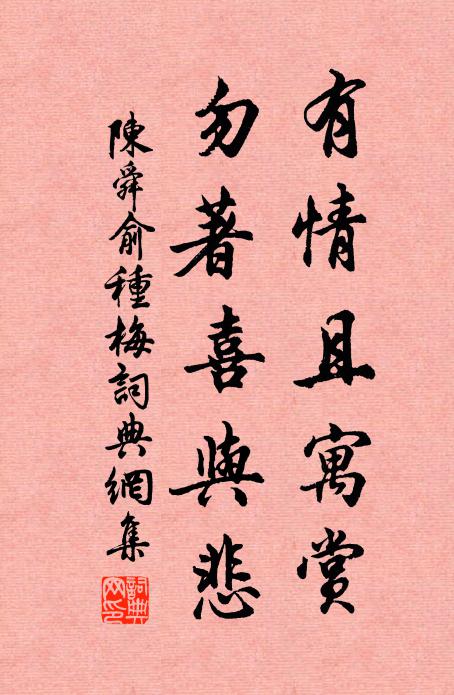 有情且寓賞
勿著喜與悲
陳舜俞種梅詞典網集
詞典网印